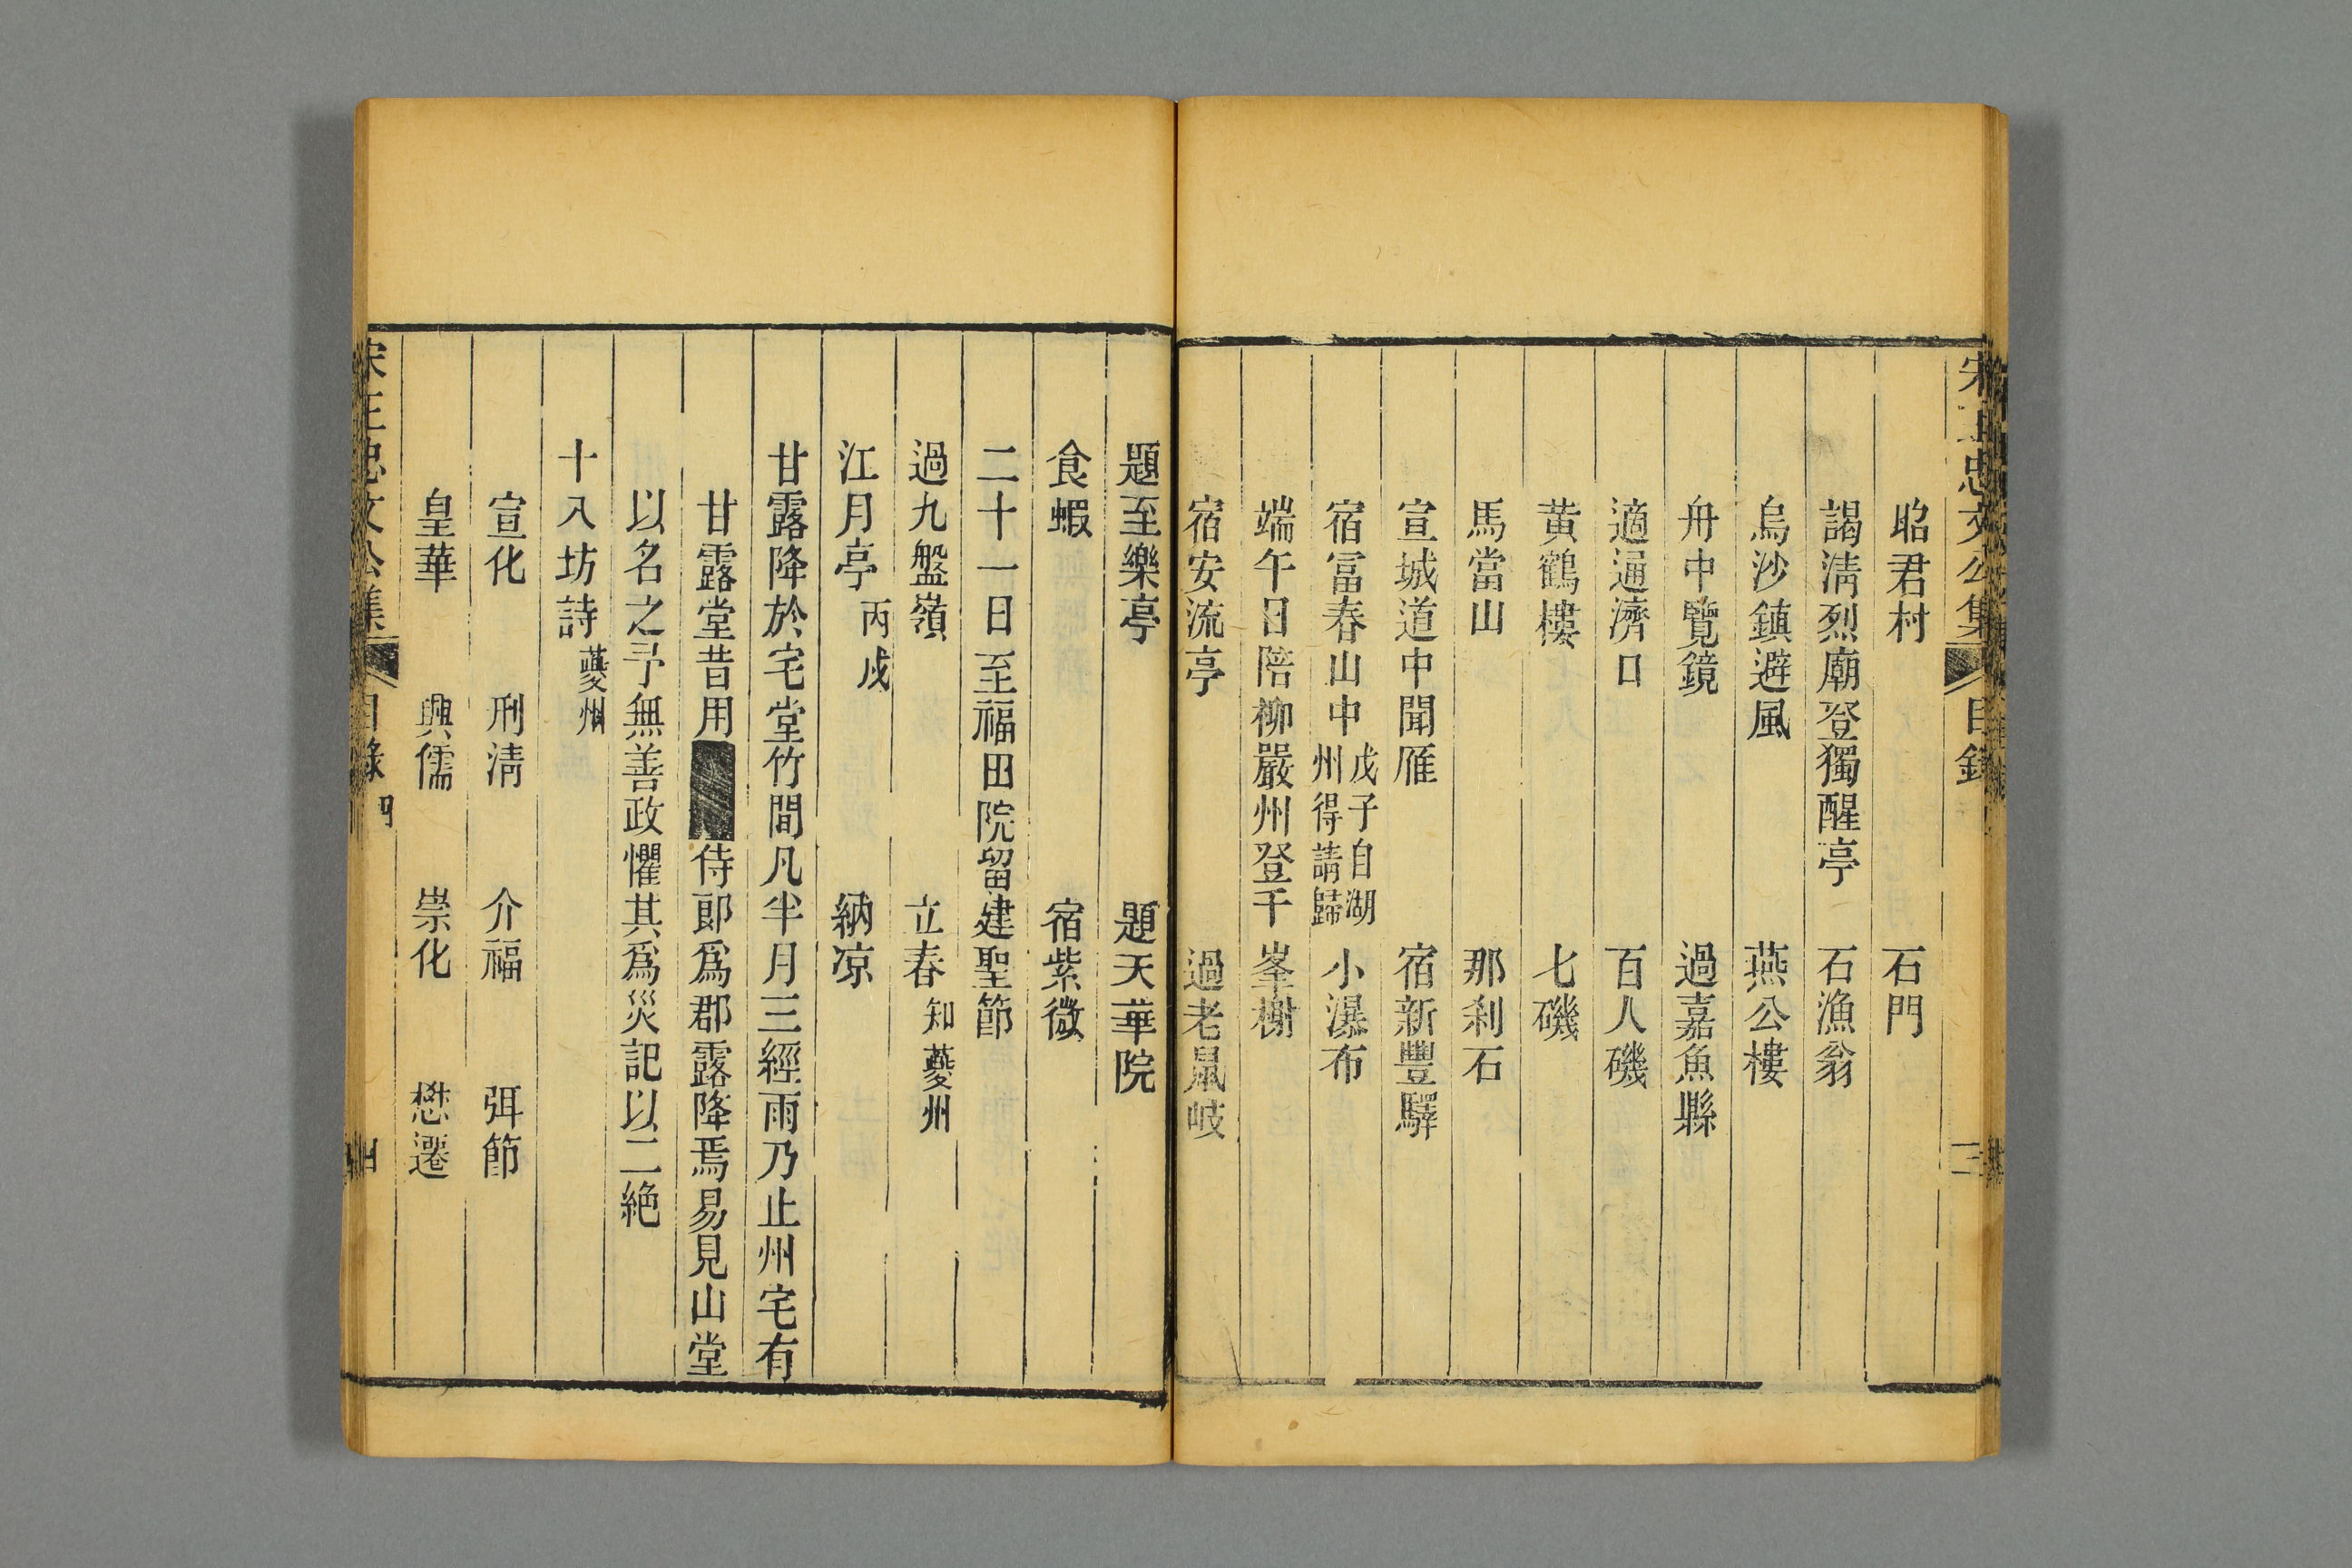 宋王忠文公集 目錄 三
昭君村 石門
謁淸烈廟登獨醒亭 石漁翁
烏沙鎮避風 燕公樓
舟中覽鏡 過嘉魚縣
適通濟口 百人磯
黄鶴樓 七磯
馬當山 那刹石
宣城道中聞雁 宿新豐驛
宿富春山中 戊子自湖州得請歸 小瀑布
端午日陪柳嚴州登千峯榭
宿安流亭 過老鼠岐
題至樂亭 題天華院
食蝦 宿紫微
二十一日至福田院留建聖節
過九盤嶺 立春 知夔州
江月亭 丙戌 納凉
甘露降於宅堂竹間凡半月三經雨乃止州宅有
甘露堂昔用侍郎爲郡露降焉易見山堂
以名之予無善政懼其爲災記以二絶
十八坊詩 夔州
宣化 刑淸 介福 弭節
皇華 興儒 崇化 懋遷
宋王忠文公集 目錄 四